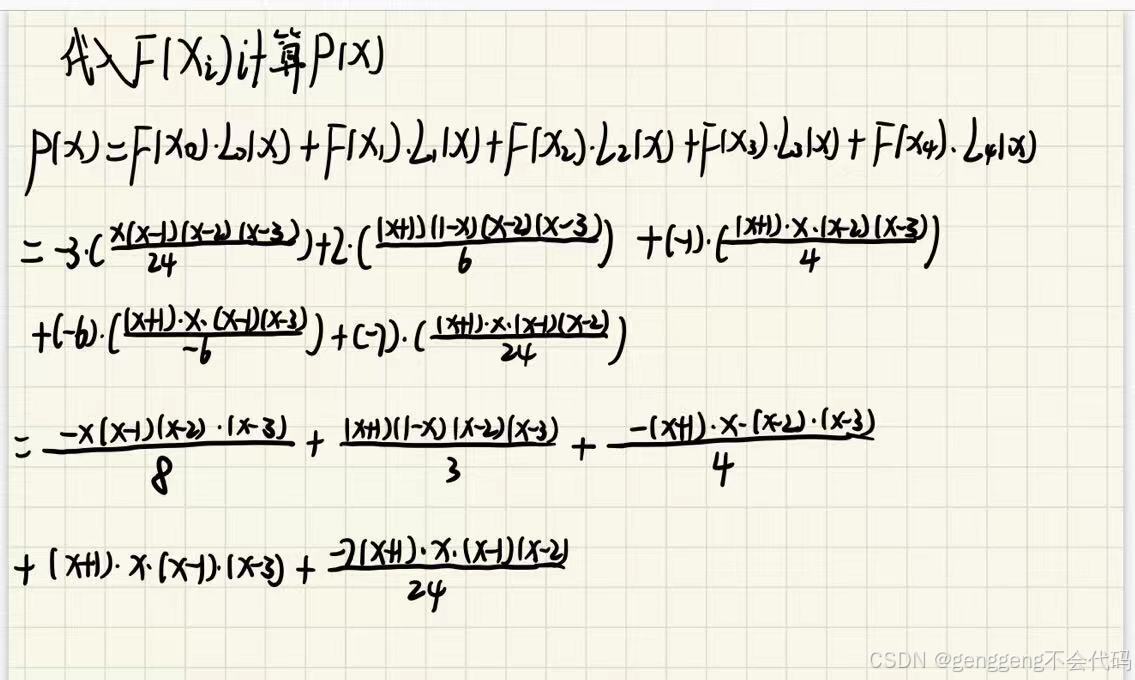 代入F(Xi)计算P(X)
P(X)=F(X0)·L0(X)+F(X1)·L1(X)+F(X2)·L2(X)+F(X3)·L3(X)+F(X4)·L4(X)
= -3·(x(x-1)(x-2)(x-3)/24)+2·((x+1)(1-x)(x-2)(x-3)/6) +(-1)·((x+1)·x·(x-2)(x-3)/4)
+(-6)·((x+1)·x·(x-1)(x-3)/-6)+(-7)·((x+1)·x·(x-1)(x-2)/24)
= -x(x-1)(x-2)·(x-3)/8 + (x+1)(1-x)(x-2)(x-3)/3 + -(x+1)·x·(x-2)·(x-3)/4
+ (x+1)·x·(x-1)·(x-3) + -7(x+1)·x·(x-1)(x-2)/24
CSDN @genggeng不会代码